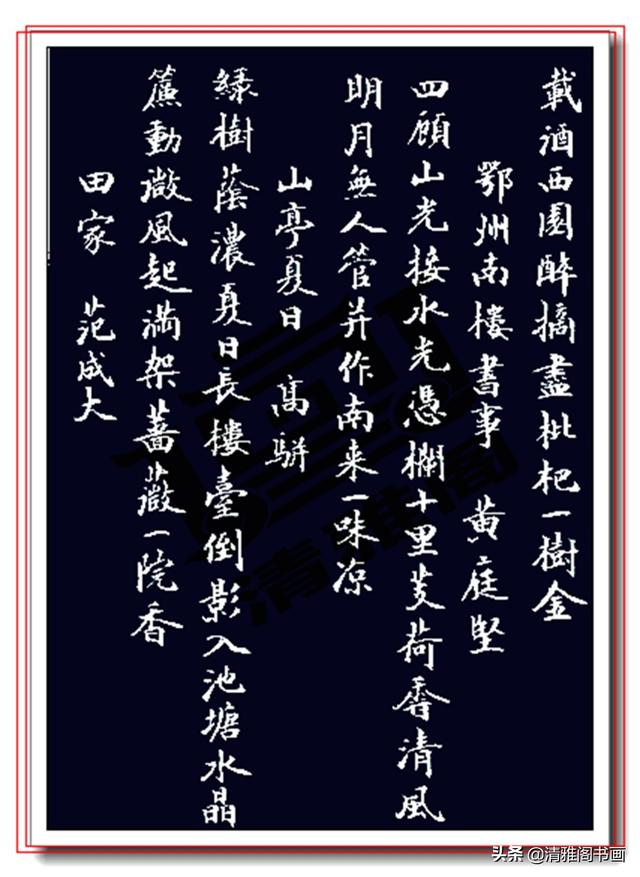 載酒西園醉摘盡枇杷一樹金
鄂州南樓書事 黄庭堅
四顧山光接水光憑欄十里芰荷香清風
明月無人管并作南来一味凉
山亭夏日 高駢
緑樹蔭濃夏日長樓臺倒影入池塘水晶
簾動微風起满架薔薇一院香
田家 范成大
清雅阁
头条@清雅阁书画